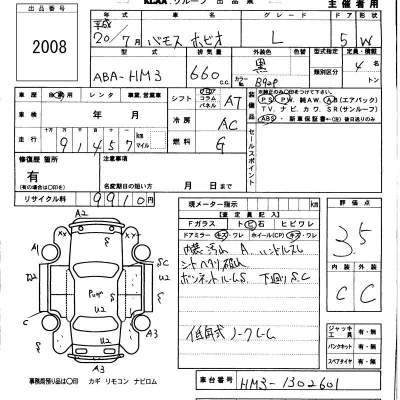 出品番号 KLAA.グループ 出品票 主催者用
年式 車名 グレード ドア 形状
2008 平成 20/7月 バモス ホビオ L 5 W
型式 排気量 外装色 型式指定 定員・積載
ABA-HM3 660cc 黒 類別区分 4名
カラーNo. B92P トン
車歴 自家用 レンタ 事業、営業車 シフト フロア コラム パネル AT
車検 年 月 冷房 AC
走行 91457 km マイル 燃料 G
装備品 PS PW、純AW、AB(エアバック)
TV、ナビ、カワ、SR(サンルーフ)
ABS・新車保証書
セールスポイント
修復歴 箇所 注意事項
有
(有の場合は○印を) 名変期日の短い方 月 日まで
リサイクル料 9910円
現メーター指示 km
【査定員記入】
Fガラス トビ石 ヒビワレ
ドアミラー キズ・ワレ ホイール(CP) キズ・ワレ
内装汚れ A. ハンドルスレ
シートヘタリ
下廻りS.C
評価点 3.5
内装 外装
C C
A2
XX
A1
U2
SC
Pump
C
A3
ジャッキ工具 有・無
パンクキット 有・無
スペアタイヤ 有・無
車台番号 HM3-1302601
事務局預り品は○印 カギ リモコン ナビロム